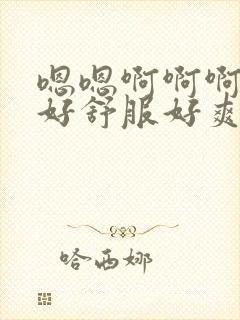 嗯嗯啊啊啊
好舒服好爽
哈西娜